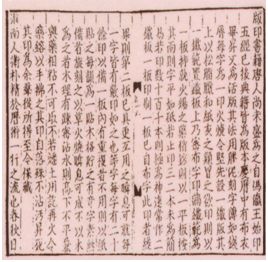 版印書籍唐人尚未盛為之自馮瀛王始印
五經已後典籍皆為版本慶曆中有布衣
畢昇又為活版其法用膠泥刻字薄如錢
唇每字為一印火燒令堅先設一鐵版其
上以松脂臘和紙灰之類冒之欲印則以
一鐵範置鐵板上乃密布字印滿鐵範為
一板持就火煬之藥稍鎔則以一平板按
其面則字平如砥若止印三二本未為簡
易若印數十百千本則極為神速常作二
鐵板一板印刷一板已自布字此印者纔
畢則第二板已具更互用之瞬息可就每
一字皆有數印如之也等字每字有二十
餘印以備一板內有重複者不用則以紙
貼之每韻為一貼木格貯之有奇字素無
備者旋刻之以草火燒瞬息可成不以木
為之者木理有疎密沾水則高下不平兼
與藥相粘不可取不若燔土用訖再火令
藥鎔以手拂之其印自落殊不沾污昇死
其印為余群從所得至今保藏
淮南人衛朴精於曆術一行之流也春秋日